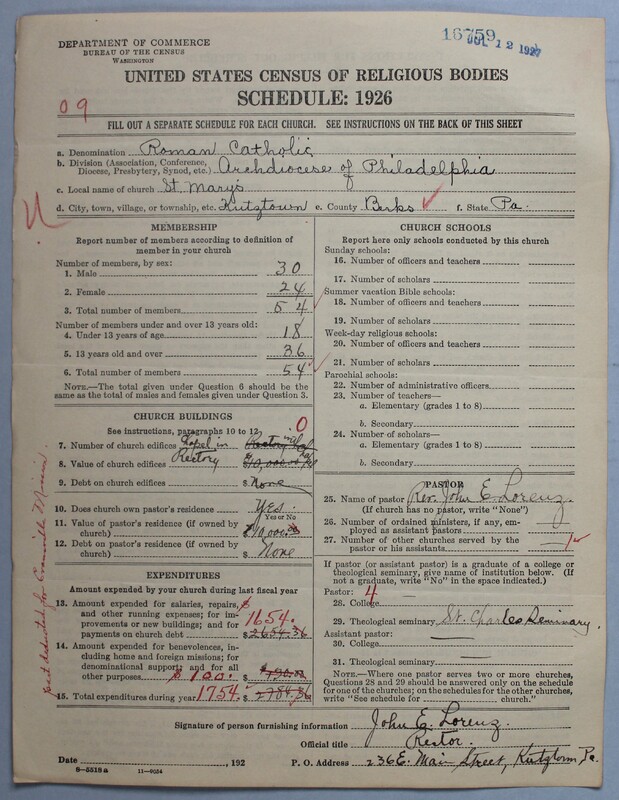 16759
JUL 12 1927
DEPARTMENT OF COMMERCE
BUREAU OF THE CENSUS
WASHINGTON
UNITED STATES CENSUS OF RELIGIOUS BODIES
SCHEDULE: 1926
09
FILL OUT A SEPARATE SCHEDULE FOR EACH CHURCH. SEE INSTRUCTIONS ON THE BACK OF THIS SHEET
a. Denomination Roman Catholic
b. Division (Association, Conference, Diocese, Presbytery, Synod, etc.) Archdiocese of Philadelphia
c. Local name of church St. Marys
d. City, town, village, or township, etc. Kutztown e. County Berks f. State Pa.
MEMBERSHIP
Report number of members according to definition of member in your church
Number of members, by sex:
1. Male 30
2. Female 24
3. Total number of members 54
Number of members under and over 13 years old:
4. Under 13 years of age 18
5. 13 years old and over 36
6. Total number of members 54
NOTE.—The total given under Question 6 should be the same as the total of males and females given under Question 3.
CHURCH BUILDINGS
See instructions, paragraphs 10 to 12 0
7. Number of church edifices Chapel in Rectory
8. Value of church edifices Rectory $10,000.00
9. Debt on church edifices $ None
10. Does church own pastor's residence? Yes
Yes or No
11. Value of pastor's residence (if owned by church) $10,000.00
12. Debt on pastor's residence (if owned by church) $ None
EXPENDITURES
Amount expended by church during last fiscal year
13. Amount expended for salaries, repairs, and other running expenses; for improvements or new buildings; and for payments on church debt $ 1654. $2654.36
14. Amount expended for benevolences, including home and foreign missions; for denominational support; and for all other purposes $100. $
15. Total expenditures during year 1754. $2784.36
CHURCH SCHOOLS
Report here only schools conducted by this church
Sunday schools:
16. Number of officers and teachers
17. Number of scholars
Summer vacation Bible schools:
18. Number of officers and teachers
19. Number of scholars
Week-day religious schools:
20. Number of officers and teachers
21. Number of scholars
Parochial schools:
22. Number of administrative officers
23. Number of teachers—
a. Elementary (grades 1 to 8)
b. Secondary
24. Number of scholars—
a. Elementary (grades 1 to 8)
b. Secondary
PASTOR
25. Name of pastor Rev. John E. Lorenz.
(If church has no pastor, write "None")
26. Number of ordained ministers, if any, employed as assistant pastors —
27. Number of other churches served by the pastor or his assistants 1
If pastor (or assistant pastor) is a graduate of a college or theological seminary, give name of institution below. (If not a graduate, write "No" in the space indicated.)
Pastor: 4
28. College —
29. Theological seminary St. Charles Seminary.
Assistant pastor:
30. College —
31. Theological seminary —
NOTE.—Where one pastor serves two or more churches, Questions 28 and 29 should be answered only on the schedule for one of the churches; on the schedules for the other churches, write "See schedule for ........ church."
Signature of person furnishing information John E. Lorenz.
Official title Rector.
Date , 192 P. O. Address 236 E. Main Street, Kutztown Pa.
8-5518 a 11-9054